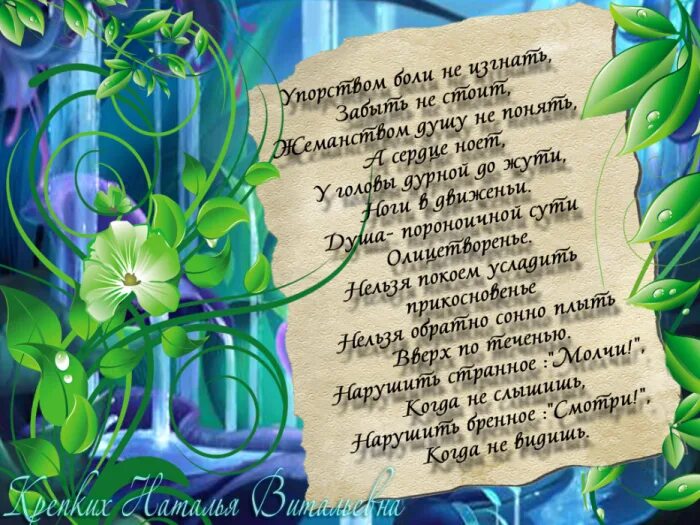 Упорством боли не изгнать,
Забыть не стоит,
Жеманством душу не понять,
А сердце ноет,
У головы дурной до жути,
Ноги в движеньи.
Душа- пороноичной сути
Олицетворенье.
Нельзя покоем усладить
прикосновенье
Нельзя обратно сонно плыть
Вверх по теченью.
Нарушить странное :"Молчи!",
Когда не слышишь,
Нарушить бренное :"Смотри!",
Когда не видишь.
Крепких Наталья Витальевна